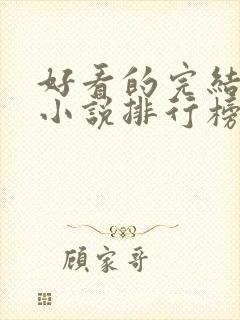 好看的完結
小說排行榜
顧家哥